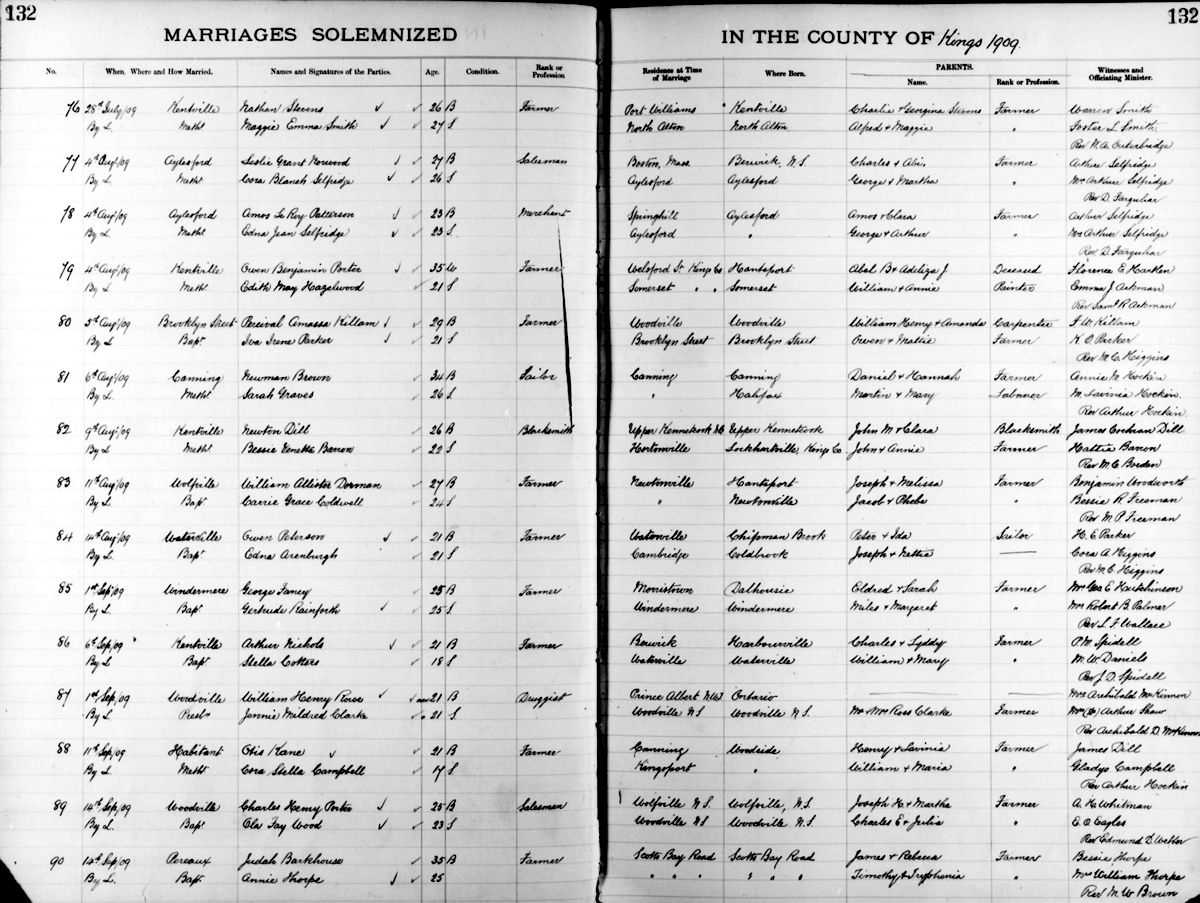 132
132
MARRIAGES SOLEMNIZED IN THE COUNTY OF Kings 1909.
No. When, Where and How Married. Names and Signatures of the Parties. Age. Condition. Rank or Profession Residence at Time of Marriage Where Born. PARENTS. Name. Rank or Profession. Witnesses and Officiating Minister.
76 28th July/09 Kentville Nathan Stevens 26 B Farmer Port Williams Kentville Charlie & Georgina Farmer Warren Smith
By L. Meth. Maggie Emma Smith 27 S North Alton North Alton. Alfred & Maggie " Foster L Smith
Rev W.A. Outerbridge
77 4th Aug/09 Aylesford Leslie Grant Norwood 27 B Salesman Boston, Mass. Berwick, N.S. Charles & Abi. Farmer Arthur Selfridge
By L. Meth. Cora Blanch Selfridge 26 S Aylesford Aylesford George & Martha " Mrs Arthur Selfridge
Rev D. Farquhar
78 4th Aug/09 Aylesford Amos Le Roy Patterson 23 B Merchant Springhill Aylesford Amos & Clara Farmer Arthur Selfridge
By L. Meth. Edna Jean Selfridge 23 S. Aylesford " George & Arthur " Mrs Arthur Selfridge
Rev D. Farquhar
79 4th Aug/09 Kentville Owen Benjamin Porter 35 W Farmer Welsford St. Kings Co Hantsport Abal B & Adeliza J Deceased Florence E. Harken
By L. Meth. Edith May Hazelwood 21 S Somerset " " Somerset William & Annie Painter Emma J Ackman
Rev Saml R Ackman
80 5th Aug/09 Brooklyn Street Percival Amassa Killam 29 B Farmer Woodville Woodville William Henry & Amanda Carpenter F. W. Killam
By L Bapt. Iva Irene Parker 21 S Brooklyn Street Brooklyn Street Owen & Mattie Farmer K. O. Parker
Rev M. C. Higgins
81 6th Aug/09 Canning Newman Brown 34 B Tailor Canning Canning Daniel & Hannah Farmer Annie M. Hockin
By L. Meth. Sarah Graves 26 S. " Halifax Martin & Mary Labourer M. Lavinia Hockin.
Rev Arthur Hockin.
82 9th Aug/09 Kentville Newton Dill 26 B Blacksmith Upper Kennetcook NS Upper Kennetcook John M & Clara Blacksmith James Cochran Dill
By L Meth. Bessie Benetta Barron 22 S. Hortonville Lockhartville, Kings Co John & Annie Farmer Hattie Barron
Rev M. C. Borden
83 11th Aug/09 Wolfville William Allister Dorman 27 B Farmer Newtonville Hantsport Joseph & Melissa Farmer Benjamin Woodworth
By L. Bapt. Carrie Grace Coldwell 24 S " Newtonville Jacob & Phebe " Bessie R Freeman
Rev M. P. Freeman
84 14th Aug/09 Waterville Owen Peterson 21 B Farmer Waterville Chipman Brook Peter & Ida Sailor H. E. Parker
By L. Bapt Edna Arenburgh 21 S Cambridge Coldbrook Joseph & Nettie Cora A Higgins
Rev M. C. Higgins
85 1st Sept/09 Windermere George Faney 25 B Farmer Morristown Dalhousie Eldred & Sarah Farmer Mrs Geo E Hutchinson
By L. Bapt. Gertrude Rainforth 25 S Windermere Windermere Miles & Margaret " Mrs Robert B. Palmer
Rev L. F. Wallace
86 6th Sep/09 Kentville Arthur Nichols 21 B Farmer Berwick Harbourville Charles & Lyddy Farmer P.M. Spidell
By L. Bapt Stella Cotters 18 S Waterville Waterville William & Mary " M. W. Daniels
Rev J. D. Spidell
87 1st Sep/09 Woodville William Henry Rowe 21 B Druggist Prince Albert N.W.T Ontario Mrs Archibald McKinnon
By L. Presb. Jennie Mildred Clarke 21 S Woodville N S Woodville N. S. Mr & Mrs Ross Clarke Farmer Arthur Shaw
Rev Archibald D. McKinnon
88 11th Sep/09 Habitant Otis Kane 21 B Farmer Canning Woodside Henry & Lavinia Farmer James Dill
By L. Meth Cora Stella Campbell 17 S Kingsport " William & Maria " Gladys Campbell
Rev Arthur Hockin
89 14th Sep/09 Woodville Charles Henry Porter 25 B Salesman Wolfville N. S. Wolfville, N.S. Joseph H. & Martha Farmer A. H. Whitman
By L. Bapt. Ola Fay Wood 23 S Woodville N S Woodville N. S. Charles E & Julia " E. O. Eagles
Rev Edmund D. Webber
90 14th Sep/09 Pereaux Judah Barkhouse 35 B Farmer Scotts Bay Road Scotts Bay Road James & Rebecca Farmer Bessie Thorpe
By L. Bapt. Annie Thorpe 25 " " " " " " Timothy & Tryphenia " Mrs William Thorpe
Rev M. W Brown